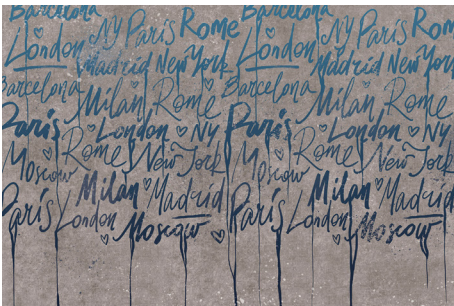 Barcelona Barcelona
Ny Paris Rome Ny Paris Rom
London London
Madrid New York Madrid New York
Barcelona Milan Rome Barcelona Milan Rome
Paris London Ny Paris London Ny
Moscow Rome New York Moscow Rome New York
Paris London Milan Madrid Paris London Milan Madrid
Moscow Moscow